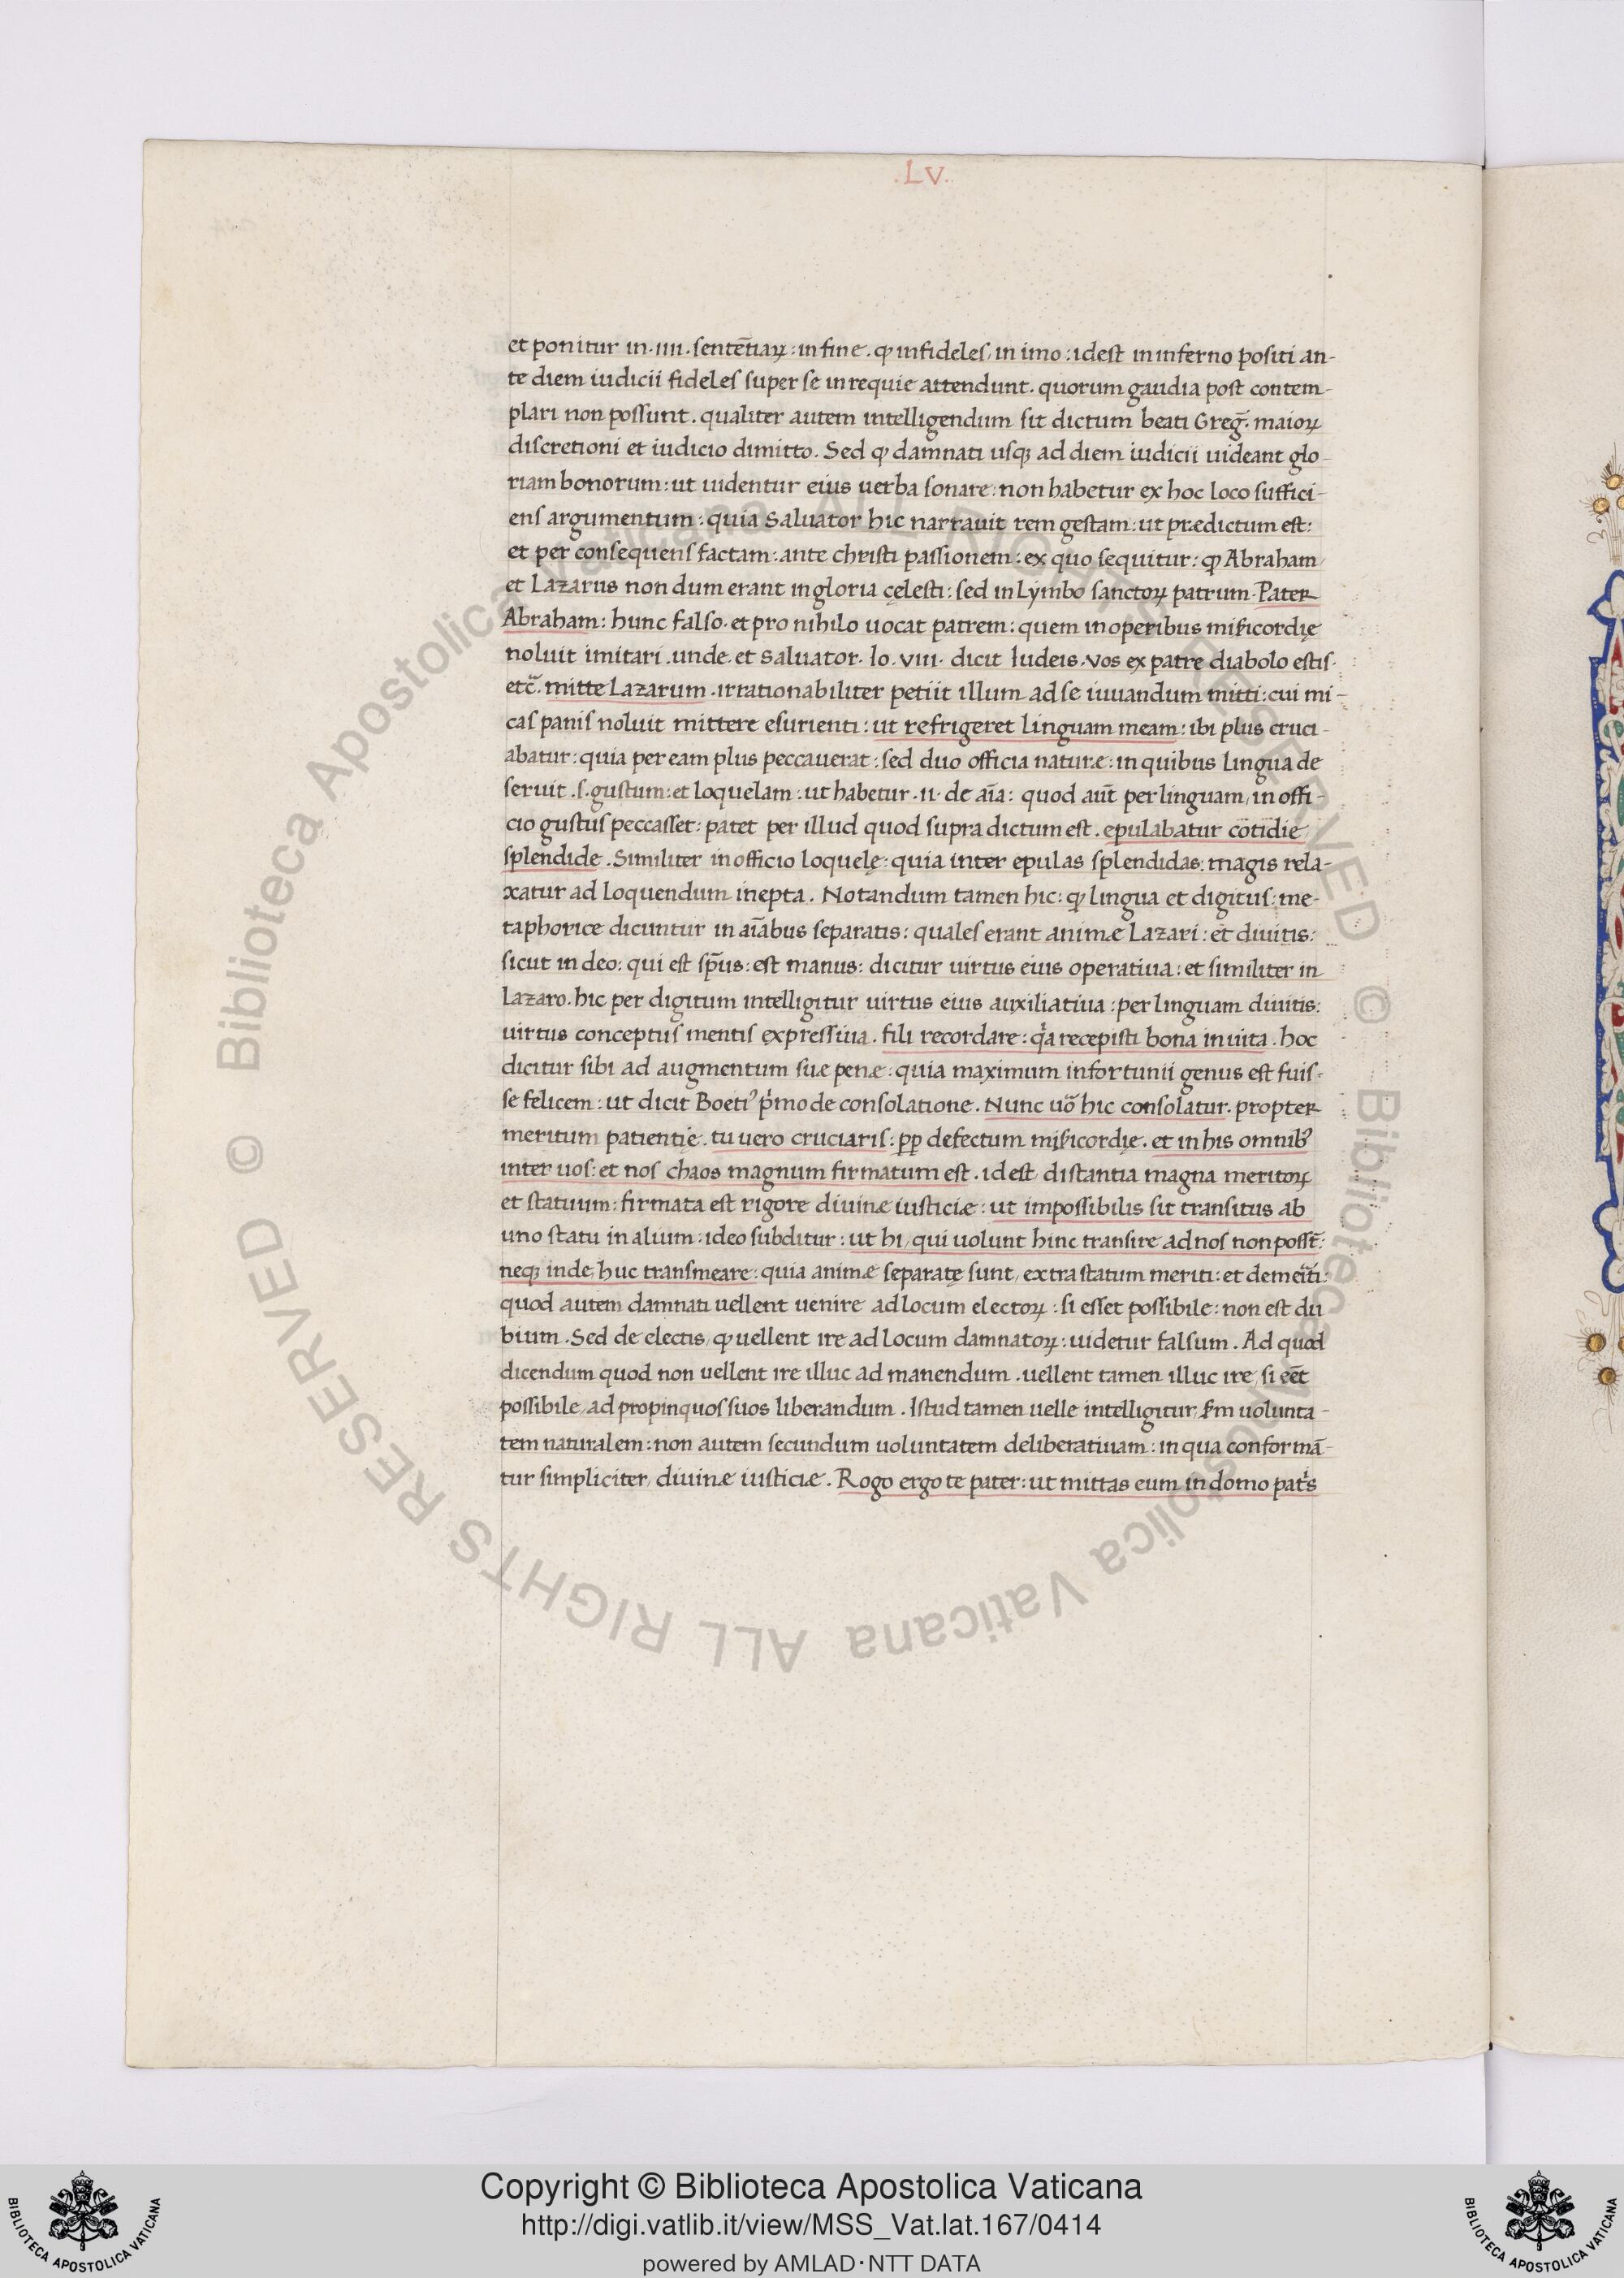 .LV.
et ponitur in .IIII. sentētiaꝝ: in fine. ꝙ infideles, in imo: idest in inferno positi an-
te diem iudicii fideles super se in requie attendunt. quorum gaudia post contem-
plari non possunt. qualiter autem intelligendum sit dictum beati Greg̃. maioꝝ
discretioni et iudicio dimitto. Sed ꝙ damnati usqꝫ ad diem iudicii uideant glo-
riam bonorum: ut uidentur eius uerba sonare: non habetur ex hoc loco suffici-
ens argumentum: quia Saluator hic narrauit rem gestam: ut prædictum est:
et per consequens factam: ante christi passionem: ex quo sequitur: ꝙ Abraham
et Lazarus nondum erant in gloria cęlesti: sed in Lymbo sanctoꝝ patrum. Pater
Abraham: hunc falso. et pro nihilo uocat patrem: quem in operibus mīẜicordię
noluit imitari. unde. et Saluator. Io. VIII. dicit Iudeis. Vos ex patre diabolo estis.
etc̃. mitte Lazarum. irrationabiliter petiit illum ad se iuuandum mitti: cui mi-
cas panis noluit mittere esurienti: ut refrigeret linguam meam: ibi plus cruci-
abatur: quia per eam plus peccauerat: sed duo officia naturæ: in quibus lingua de
seruit. s. gustum: et loquelam: ut habetur .II. de aīa: quod aut̄ per linguam, in offi-
cio gustus peccasset: patet per illud quod supra dictum est. epulabatur cotidie
splendide. Similiter in officio loquelę: quia inter epulas splendidas: magis rela-
xatur ad loquendum inepta. Notandum tamen hic: ꝙ lingua et digitus: me-
taphorice dicuntur in aīabus separatis: quales erant animæ Lazari: et diuitis:
sicut in deo: qui est sp̄us: est manus: dicitur uirtus eius operatiua: et similiter in
Lazaro. hic per digitum intelligitur uirtus eius auxiliatiua: per linguam diuitis:
uirtus conceptus mentis expressiua. fili recordare: qͥa recepisti bona in uita. hoc
dicitur sibi ad augmentum suæ penæ: quia maximum infortunii genus est fuis-
se felicem: ut dicit Boetiꝰ pͥmo de consolatione. Nunc uō hic consolatur. propter
meritum patientię. tu uero cruciaris: ꝓp̄ defectum mīẜicordię. et in his omnibꝰ
inter uos: et nos chaos magnum firmatum est. idest distantia magna meritoꝝ
et statuum: firmata est rigore diuinæ iusticiæ: ut impossibilis sit transitus ab
uno statu in alium: ideo subditur: ut hi, qui uolunt hinc transire ad nos non posst̄:
neqꝫ inde, huc transmeare: quia animæ separatę sunt, extra statum meriti: et demeͥti:
quod autem damnati uellent uenire ad locum electoꝝ: si esset possibile: non est du
bium. Sed de electis, ꝙ uellent ire ad locum damnatoꝝ: uidetur falsum. Ad quod
dicendum quod non uellent ire illuc ad manendum. uellent tamen illuc ire, si eēt
possibile, ad propinquos suos liberandum. Istud tamen uelle intelligitur, ẜm uolunta-
tem naturalem: non autem secundum uoluntatem deliberatiuam: in qua conformā-
tur simpliciter, diuinæ iusticiæ. Rogo ergo te pater: ut mittas eum in domo patͥs
© Biblioteca Apostolica Vaticana ALL RIGHTS RESERVED © Biblioteca Apostolica Vaticana ALL RIGHTS RESERVED
BIBLIOTECA APOSTOLICA VATICANA
Copyright © Biblioteca Apostolica Vaticana
http://digi.vatlib.it/view/MSS_Vat.lat.167/0414
powered by AMLAD・NTT DATA
BIBLIOTECA APOSTOLICA VATICANA